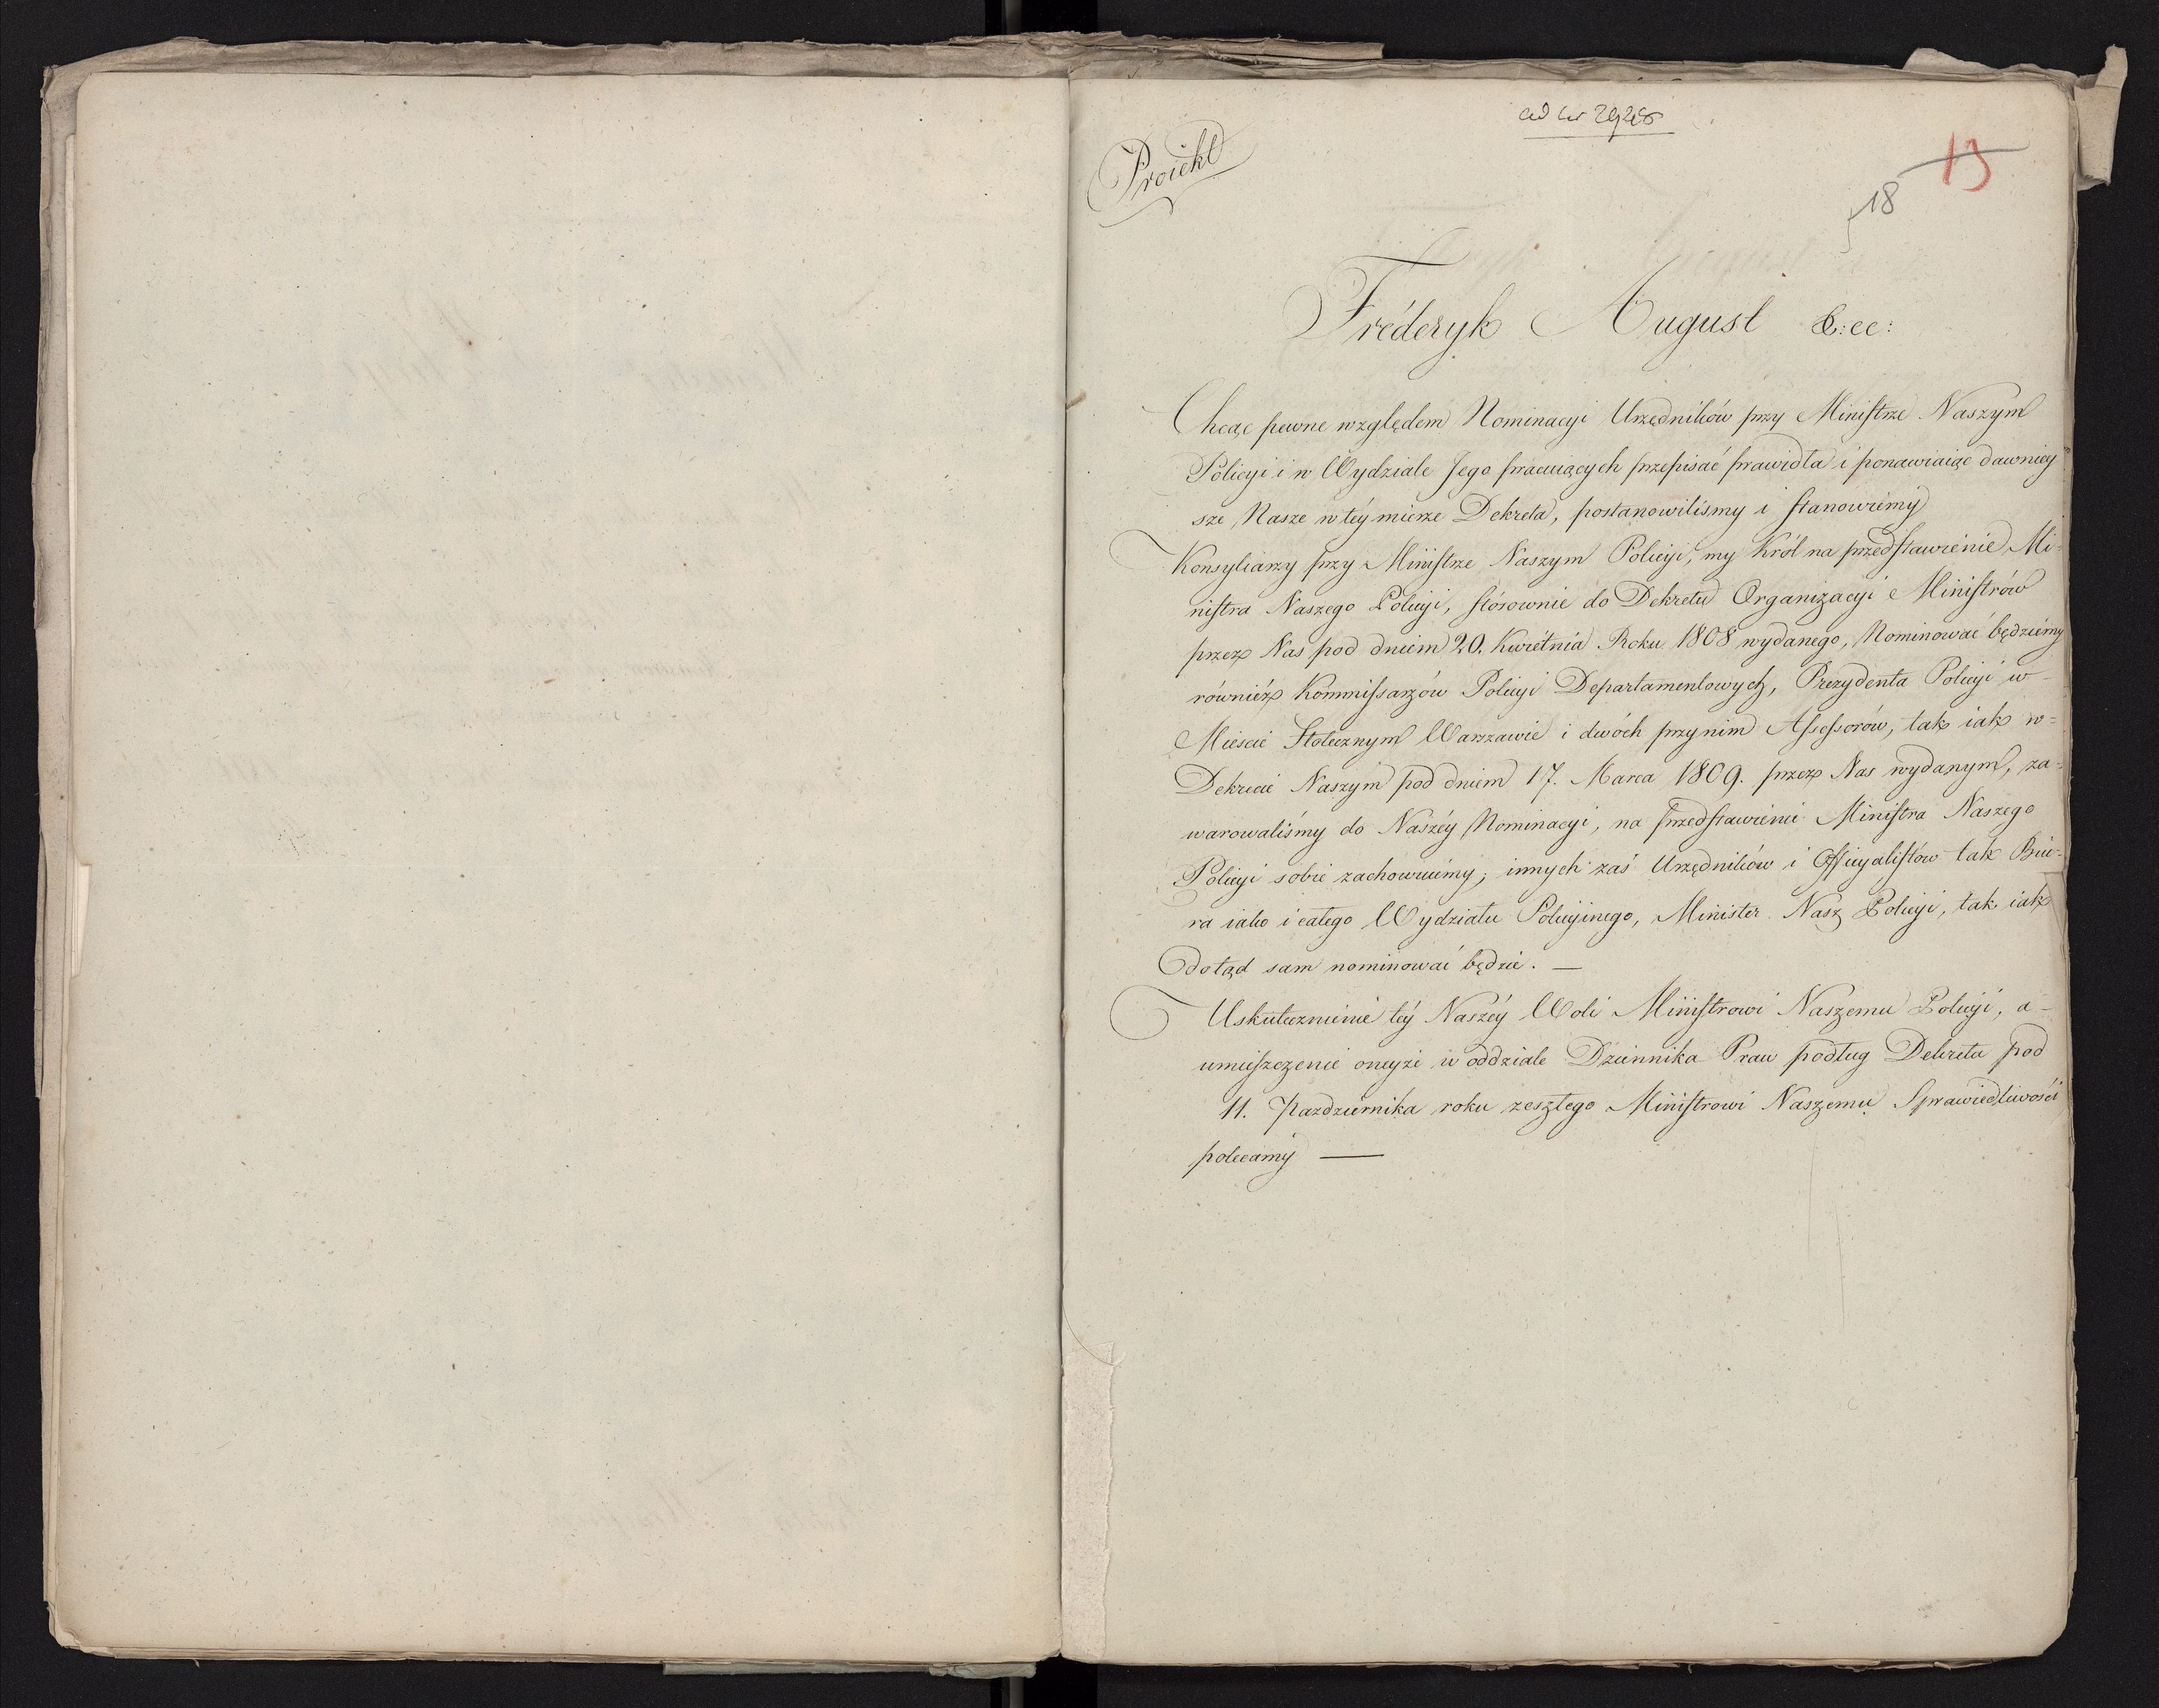 Proiekt
13
18
Fréderyk August &:cc:
Chcąc pewne względem Nominacyi Urzędników przy Ministrze Naszym
Policyi i w Wydziale Jego pracuiących przepisać prawidła i ponawiaiąc dawniey
sze Nasze w téy mierze Dekreta, postanowilismy i stanowiemy
Konsyliarzy przy Ministrze Naszym Policyi, my Król na przedstawienie Mi-
nistra Naszego Policyi, stósownie do Dekretu Organizacyi Ministrów
przez Nas pod dniem 20. Kwietnia Roku 1808 wydanego, Nominować będziemy
również Kommissarzów Policyi Departamentowych, Prezydenta Policyi w-
Miescie Stołecznym Warszawie i dwóch przy nim Assessorów, tak iak w=
Dekrecie Naszym pod dniem 17. Marca 1809. przez Nas wydanym, za=
warowaliśmy do Naszéy Nominacyi, na przedstawienie Ministra Naszego
Policyi sobie zachowuiemy; innych zaś Urzędników i Officyalistów tak Biu-
ra iako i całego Wydziału Policyinego, Minister Nasz Policyi, tak iak
dotąd sam nominować będzie. —
Uskutecznienie téy Naszéy Woli Ministrowi Naszemu Policyi, a-
umieszczenie oneyże w oddziale Dziennika Praw podług Dekretu pod
11. Pazdziernika roku zeszłego Ministrowi Naszemu Sprawiedliwości
polecamy —